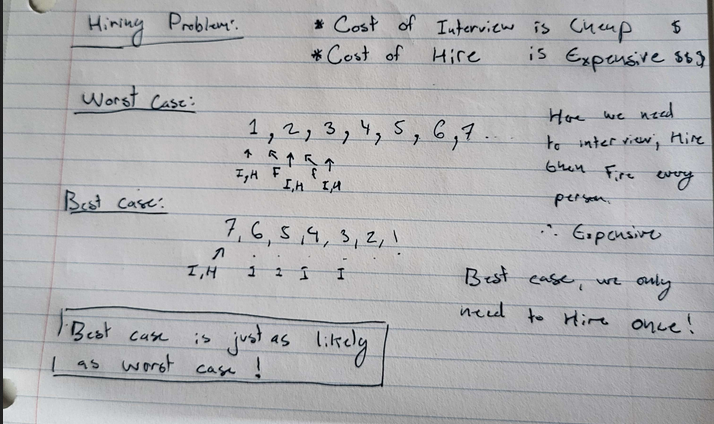 Hiring Problem:
* Cost of Interview is Cheap $
* Cost of Hire is Expensive $$$
Worst Case:
1, 2, 3, 4, 5, 6, 7...
I,H F I,H F I,H
Here we need
to interview, Hire
then Fire every
person.
∴ Expensive
Best case:
7, 6, 5, 4, 3, 2, 1
I,H I I I I
Best case, we only
need to Hire once!
Best case is just as likely
as worst case!